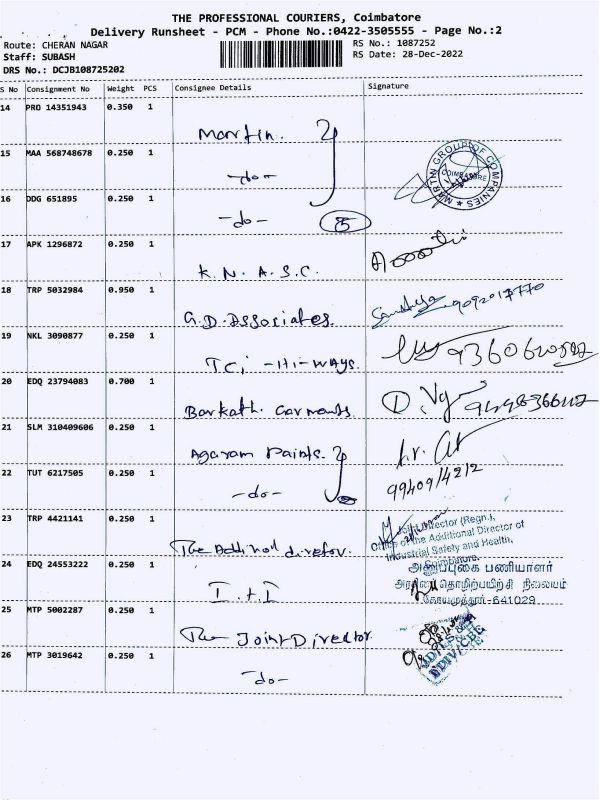 THE PROFESSIONAL COURIERS, Coimbatore
Delivery Runsheet - PCM - Phone No.:0422-3505555 - Page No.:2
Route: CHERAN NAGAR
RS No.: 1087252
Staff: SUBASH
RS Date: 28-Dec-2022
DRS No.: DCJB108725202
S No Consignment No Weight PCS Consignee Details Signature
14 PRO 14351943 0.350 1
Martin.
15 MAA 568748678 0.250 1
-do-
MARTIN GROUP OF COMPANIES
COIMBATORE
16 DDG 651895 0.250 1
-do- 5
17 APK 1296872 0.250 1
K.N.A.S.C.
18 TRP 5032984 0.950 1
G.D.Associates.
19 NKL 3090877 0.250 1
TCi -Hi-ways.
20 EDQ 23794083 0.700 1
Barkath. Garments.
21 SLM 310409606 0.250 1
Agaram Paints.
22 TUT 6217505 0.250 1
-do-
23 TRP 4421141 0.250 1
The Addinal director.
Joint Director (Regn.),
Office of the Additional Director of
Industrial Safety and Health,
Coimbatore.
24 EDQ 24553222 0.250 1
I.t.I
பணியாளர்
தொழிற்பயிற்சி நிலையம்
கோயமுத்தூர்-641029
25 MTP 5002287 0.250 1
The Joint Director
26 MTP 3019642 0.250 1
-do-